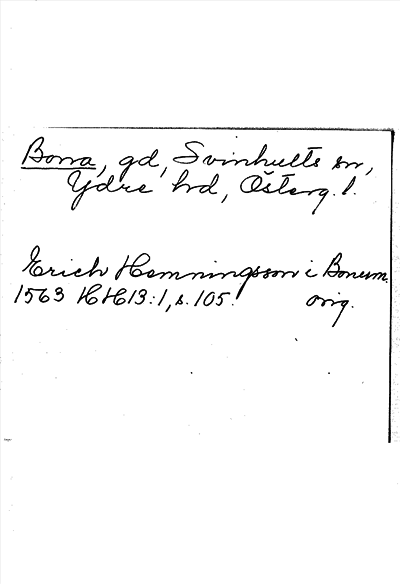 Bona, gd, Svinhults sn,
Ydre hd, Österg. l.
Erich Hemmingsson i Bonum.
1563 HH13:1, s. 105. orig.